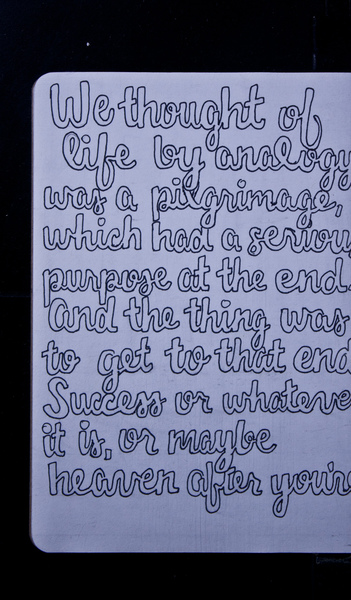 We thought of
life by analogy
was a pilgrimage,
which had a seriou
purpose at the end.
And the thing was
to get to that end
Success or whateve
it is, or maybe
heaven after you're